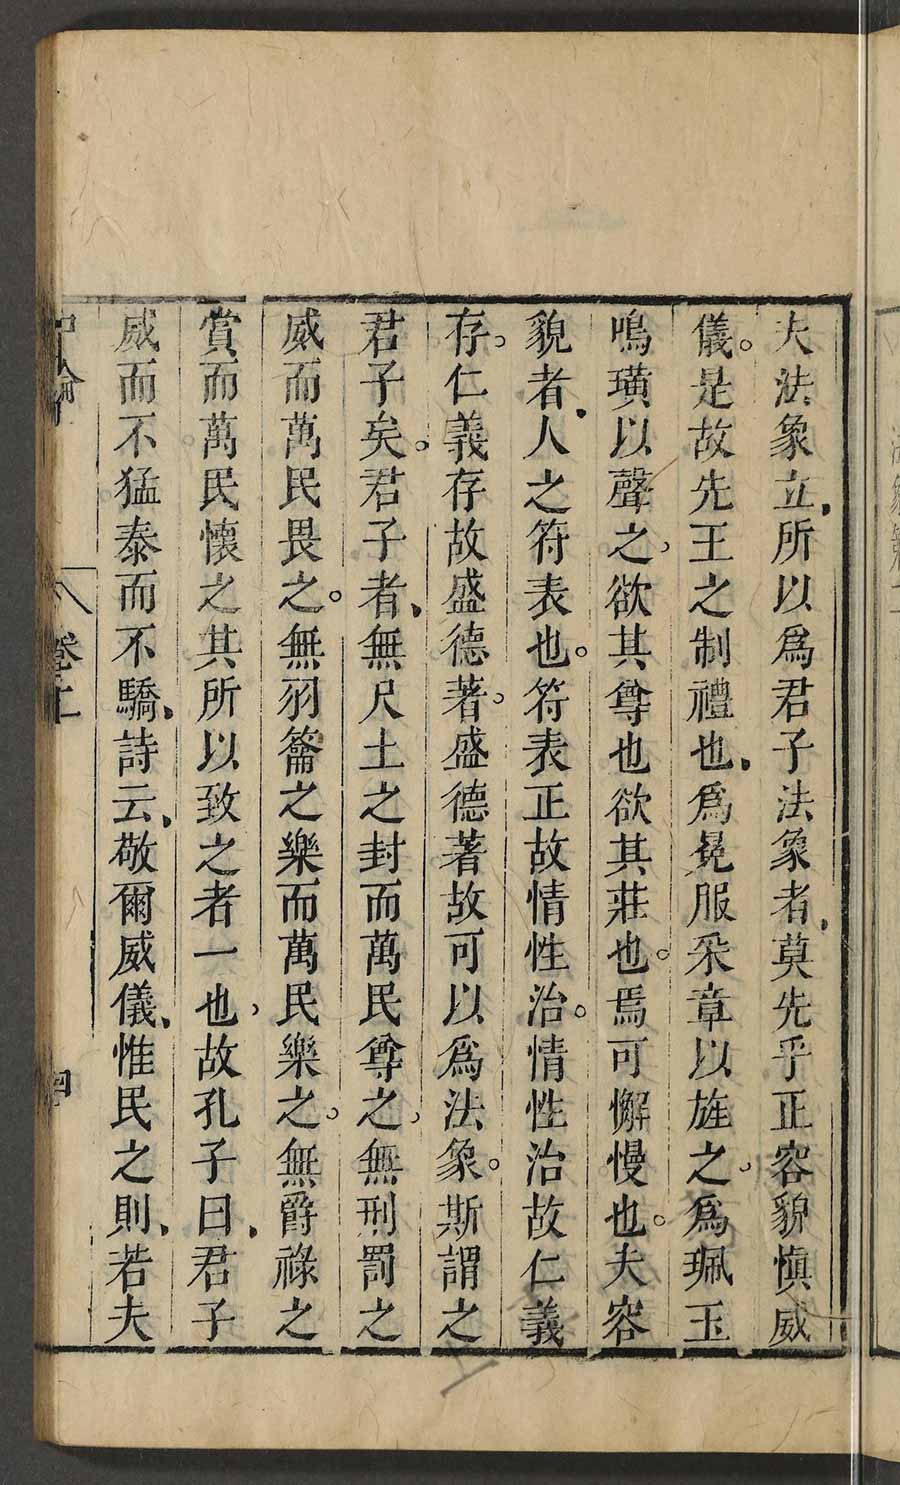 夫法象立、所以爲君子法象者、莫先乎正容貌愼威
儀。是故先王之制禮也、爲冕服采章以旌之、爲珮玉
鳴璜以聲之、欲其尊也欲其莊也。焉可懈慢也。夫容
貌者、人之符表也。符表正故情性治。情性治故仁義
存。仁義存故盛德著。盛德著故可以爲法象。斯謂之
君子矣。君子者、無尺土之封而萬民尊之、無刑罰之
威而萬民畏之。無羽籥之樂而萬民樂之。無爵祿之
賞而萬民懷之其所以致之者一也、故孔子曰、君子
威而不猛泰而不驕、詩云、敬爾威儀、惟民之則、若夫
中論
卷上
四